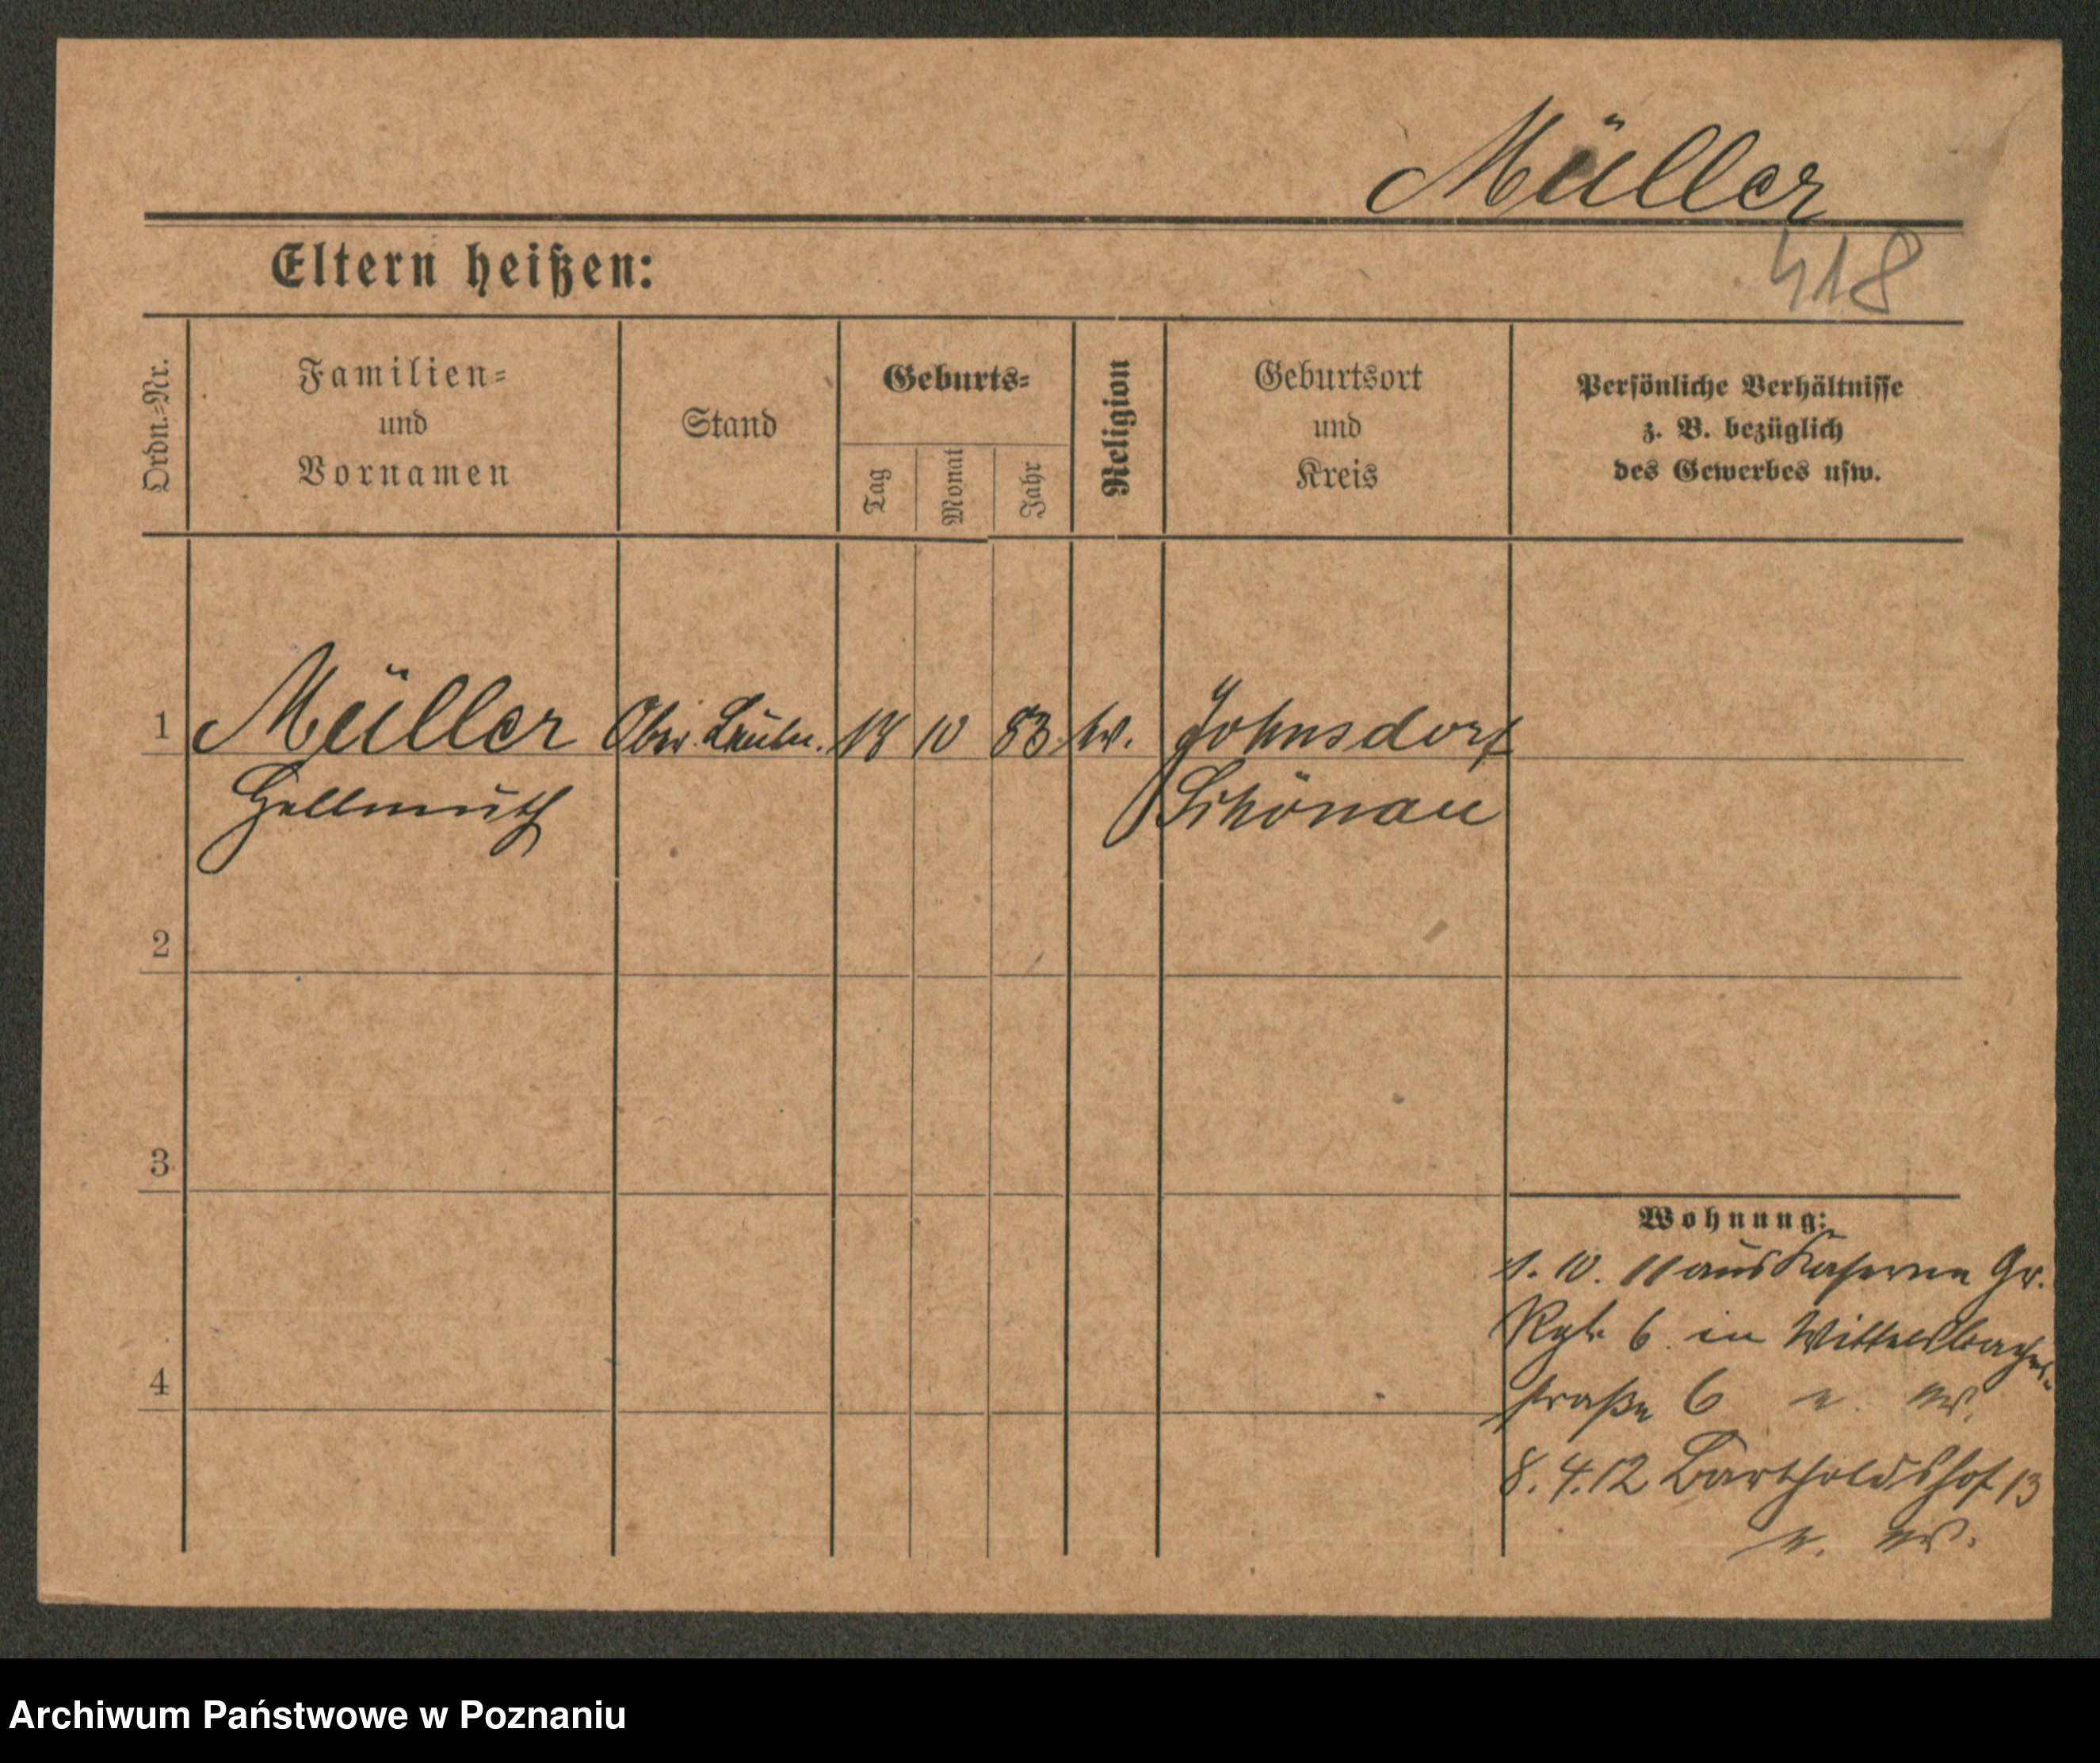 Müller
Eltern heißen:
418
Ordn.-Nr.
Familien-
und
Vornamen
Stand
Geburts-
Tag
Monat
Jahr
Religion
Geburtsort
und
Kreis
Persönliche Verhältnisse
z. B. bezüglich
des Gewerbes usw.
1 Müller Ober 18 10 83 Johnsdorf
Hellmuth Schönau
2
3
Wohnung:
1. 10. 11 aus Kaserne Gr.
Rgt. 6 in Wittelsbacher-
4
straße 6
8. 4. 12 Bartholdshof 13
Archiwum Państwowe w Poznaniu